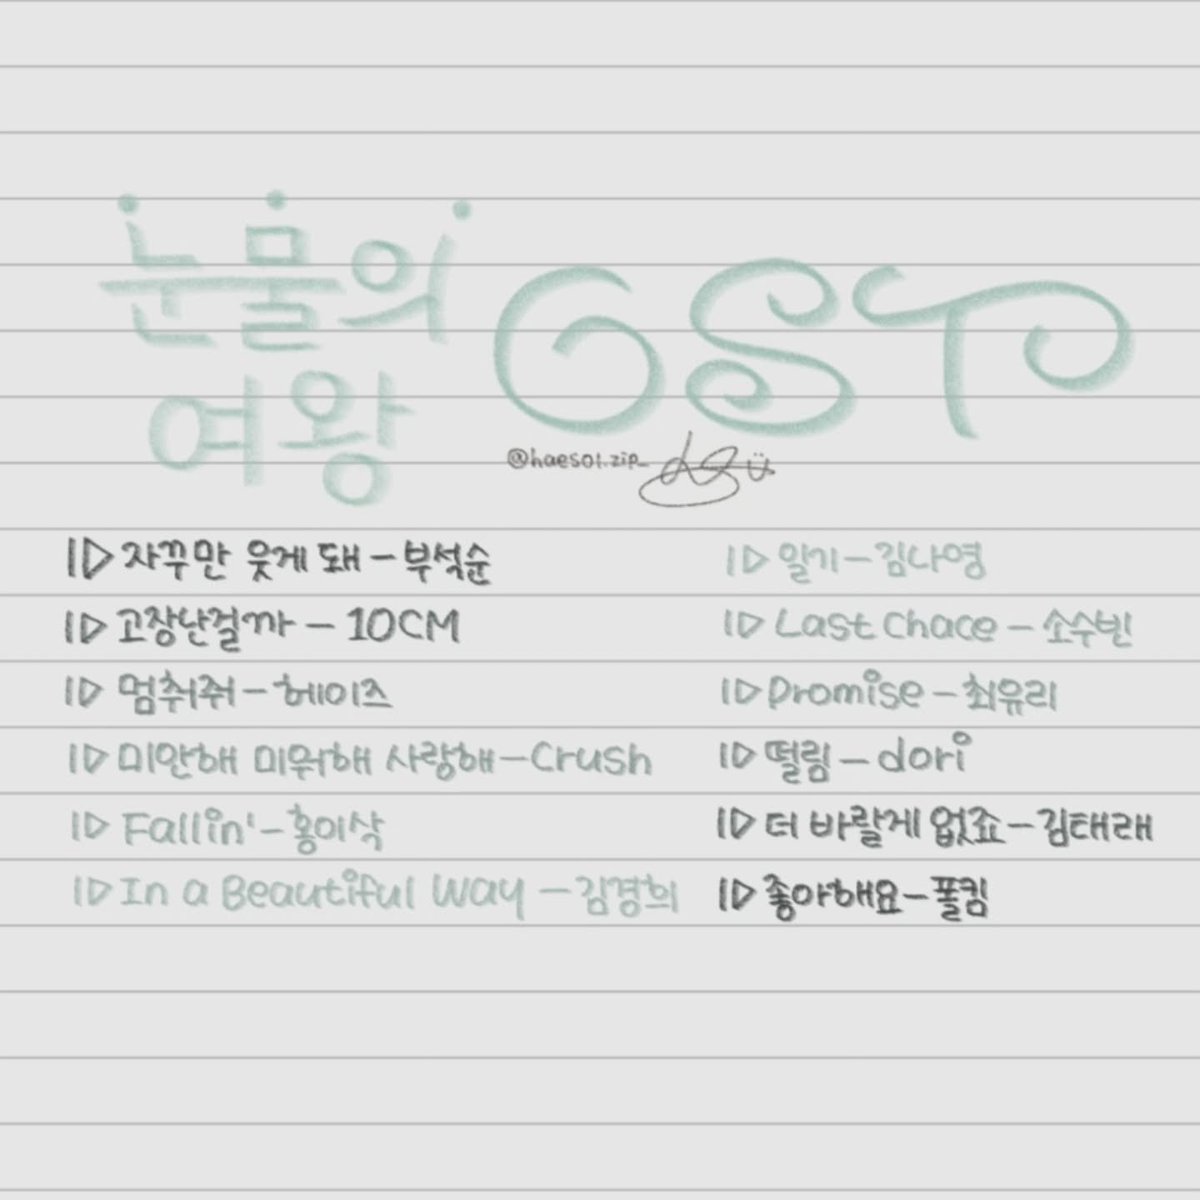 눈물의
여왕
OST
@haesol.zip_
I▷ 자꾸만 웃게 돼 - 부석순
I▷ 고장난걸까 - 10CM
I▷ 멈춰줘 - 헤이즈
I▷ 미안해 미워해 사랑해 - Crush
I▷ Fallin' - 홍이삭
I▷ In a Beautiful Way - 김경희
I▷ 일기 - 김나영
I▷ Last Chace - 소수빈
I▷ Promise - 최유리
I▷ 떨림 - dori
I▷ 더 바랄게 없죠 - 김태래
I▷ 좋아해요 - 폴킴